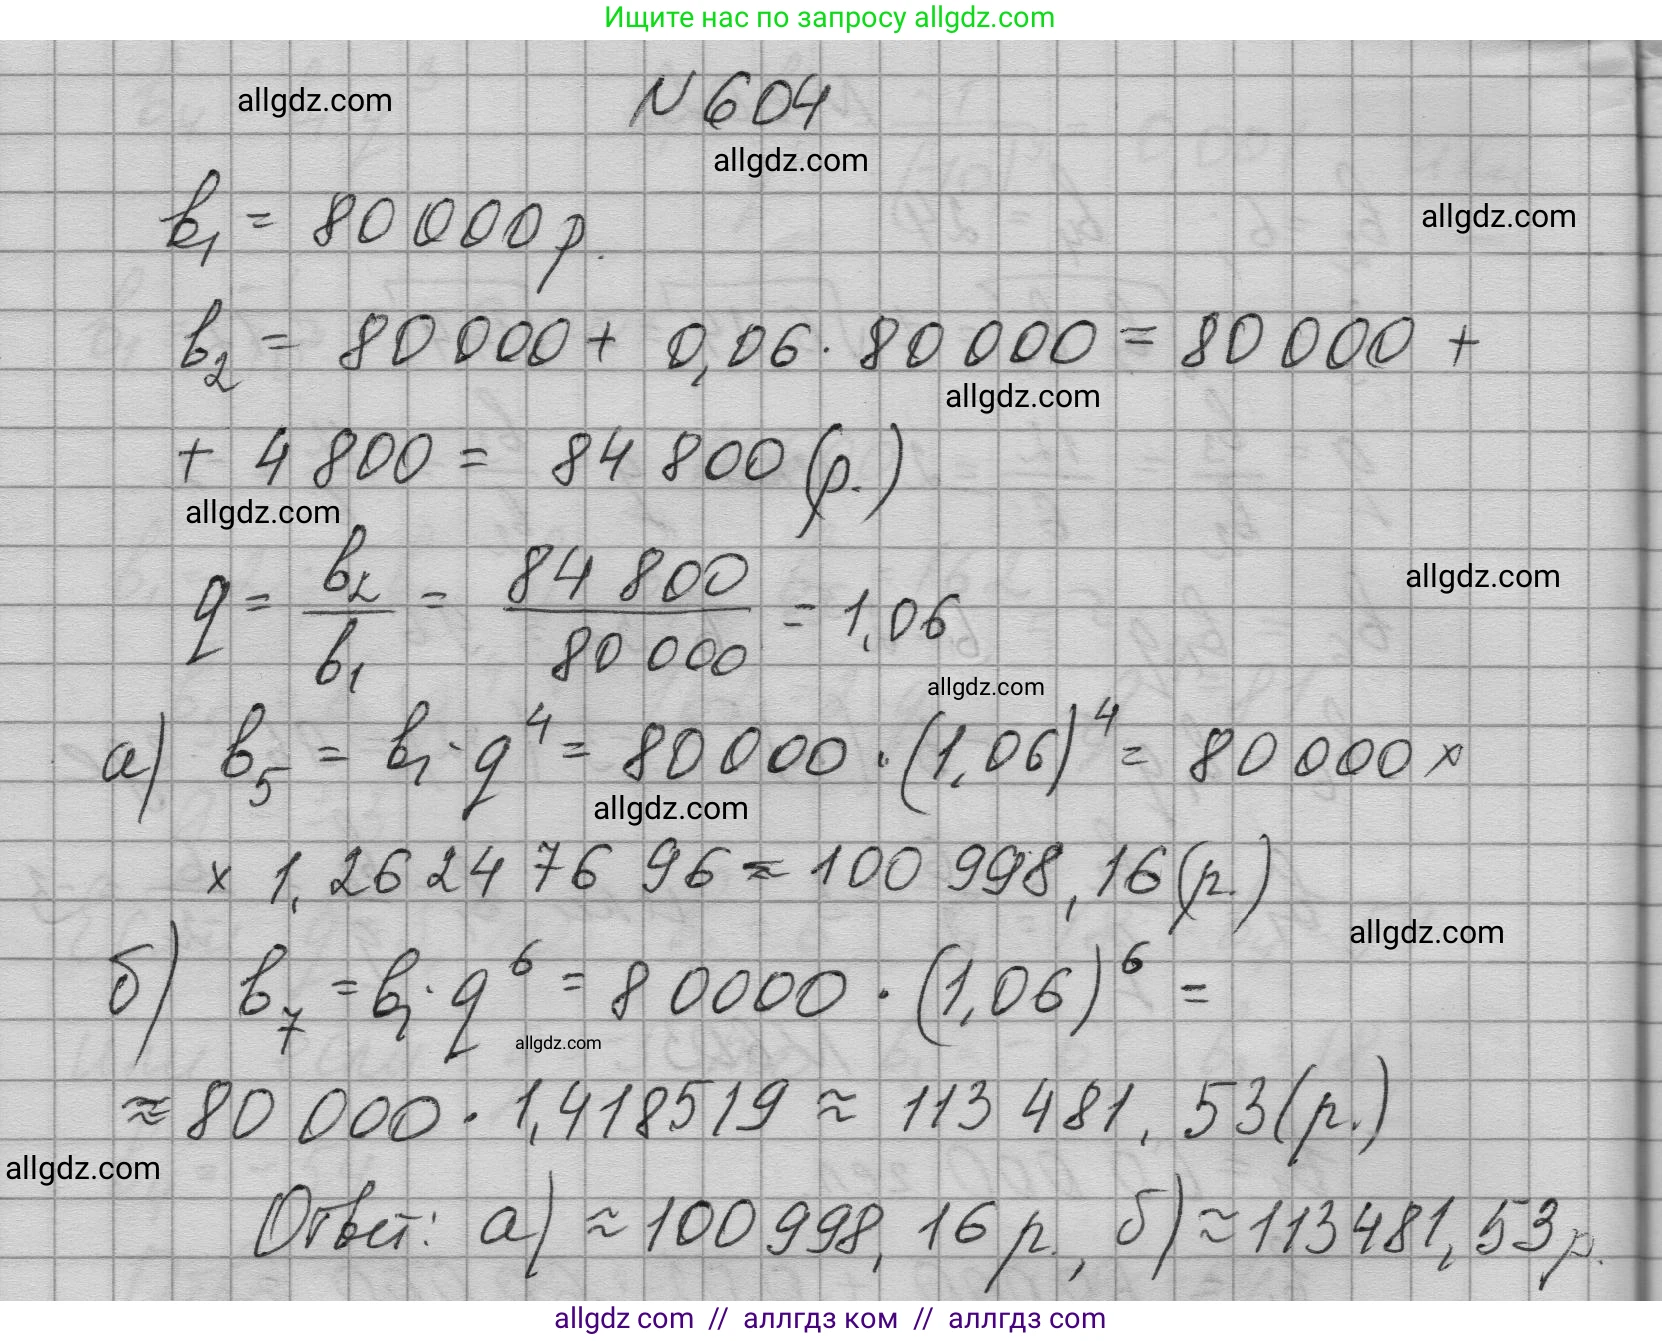 Ищите нас по запросу allgdz.com
allgdz.com
N 604
allgdz.com
b₁ = 80 000 р.
allgdz.com
b₂ = 80 000 + 0,06 · 80 000 = 80 000 +
allgdz.com
+ 4 800 = 84 800 (р.)
allgdz.com
q = b₂/b₁ = 84 800/80 000 = 1,06
allgdz.com
allgdz.com
а) b₅ = b₁ · q⁴ = 80 000 · (1,06)⁴ = 80 000 ×
allgdz.com
× 1,26247696 ≈ 100 998,16 (р.)
allgdz.com
б) b₇ = b₁ · q⁶ = 80000 · (1,06)⁶ =
allgdz.com
≈ 80 000 · 1,418519 ≈ 113 481,53 (р.)
allgdz.com
Ответ: а) ≈ 100 998,16 р., б) ≈ 113481,53 р.
allgdz com // аллгдз ком // аллгдз com